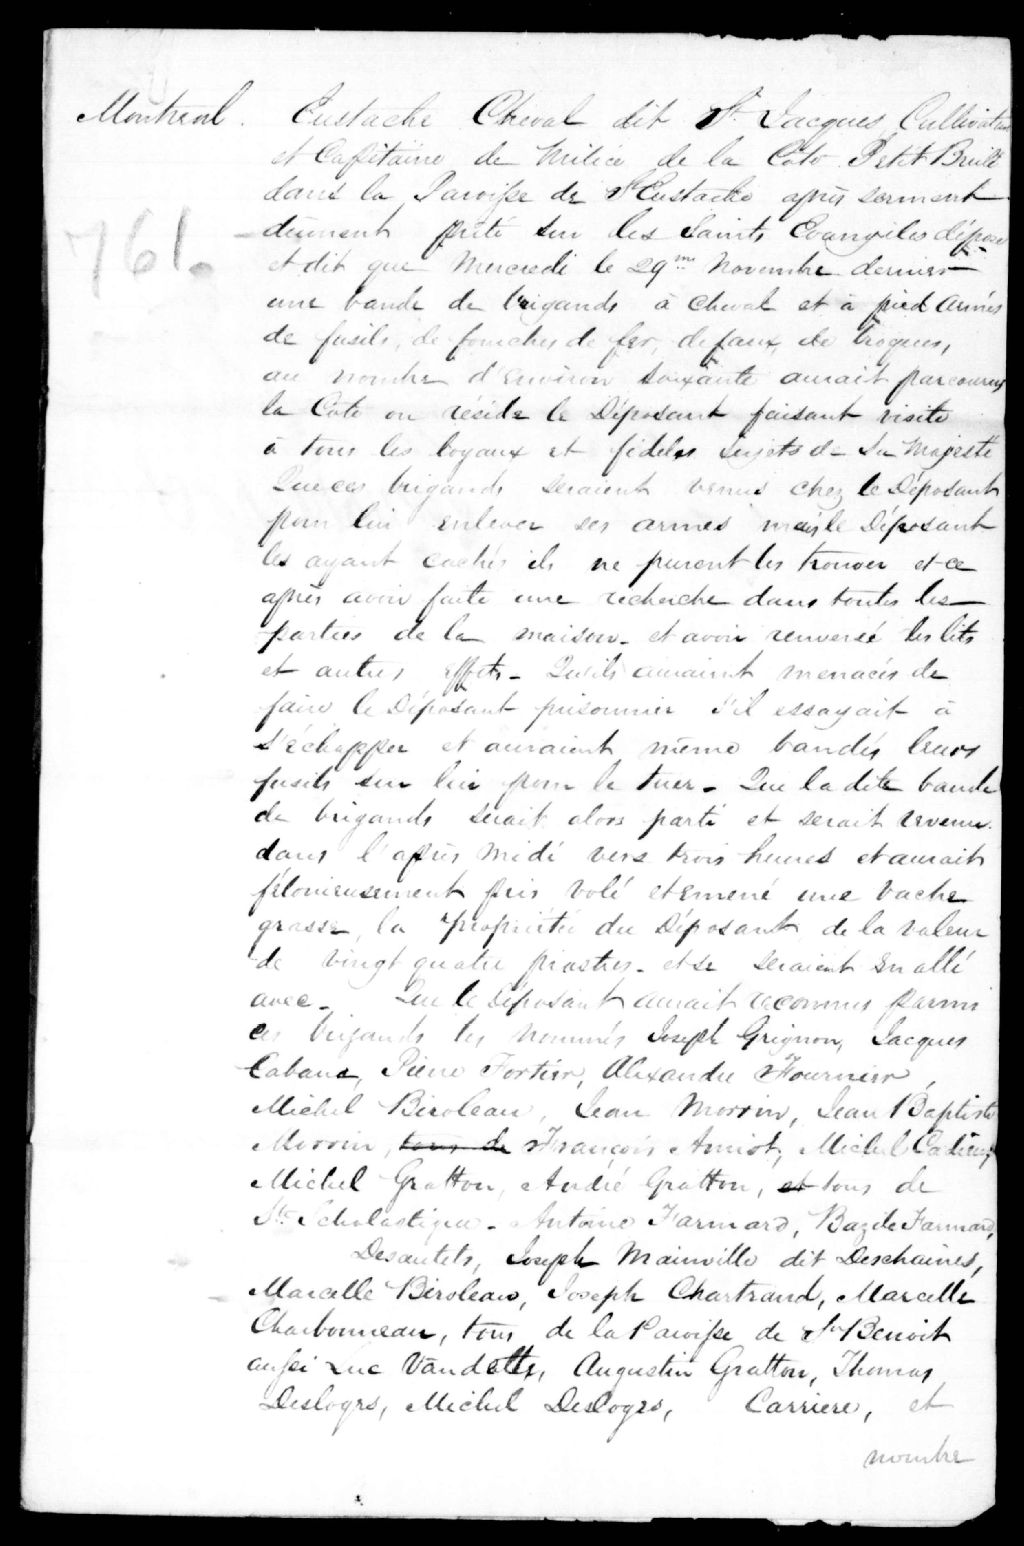 Montreal. Eustache Cheval dit St. Jacques, Cultivateur
et Capitaine de Milice de la Côte Petit Brulé
dans la Paroisse de St Eustache après serment
dûment prêté sur les Saints Evangiles dépose
761.
et dit que Mercredi le 29me Novembre dernier
une bande de brigands à cheval et à pied armés
de fusils, de fourches de fer, de faux, de broques,
au nombre d'environ soixante aurait parcourus
la Côte ou réside le Déposant faisant visite
à tous les loyaux et fidèles sujets de Sa Majesté
Que ces brigands seraient venus chez le Déposant
pour lui enlever ses armes mais le Déposant
les ayant cachés ils ne purent les trouver et ce
après avoir faite une recherche dans toutes les
parties de la maison - et avoir renversé les lits
et autres effets - Qu'ils auraient menacés de
faire le Déposant prisonnier s'il essayait à
s'échapper et auraient même bandés leurs
fusils sur lui pour le tuer - Que la dite bande
de brigands serait alors parti et serait revenu
dans l'après midi vers trois heures et aurait
félonieusement pris volé et emené une vache
grasse, la propriété du Déposant de la valeur
de vingt quatre piastres - et se seraient en allé
avec - Que le Déposant aurait reconnus parmi
ces brigands les nommés Joseph Grignon, Jacques
Cabana, Pierre Fortier, Alexandre Fournier,
Michel Biroleau, Jean Morrin, Jean Baptiste
Morrin, tous de François Amiot, Michel Cadieux,
Michel Gratton, André Gratton, et tous de
Ste Scholastique - Antoine Farmard, Bazile Farmard,
Desautels, Joseph Mainville dit Deschaines,
Marcelle Biroleau, Joseph Chartrand, Marcelle
Charbonneau, tous de la Paroisse de St Benoit
aussi Luc Vandette, Augustin Gratton, Thomas
Desloges, Michel Desloges, Carriere, et
nombre